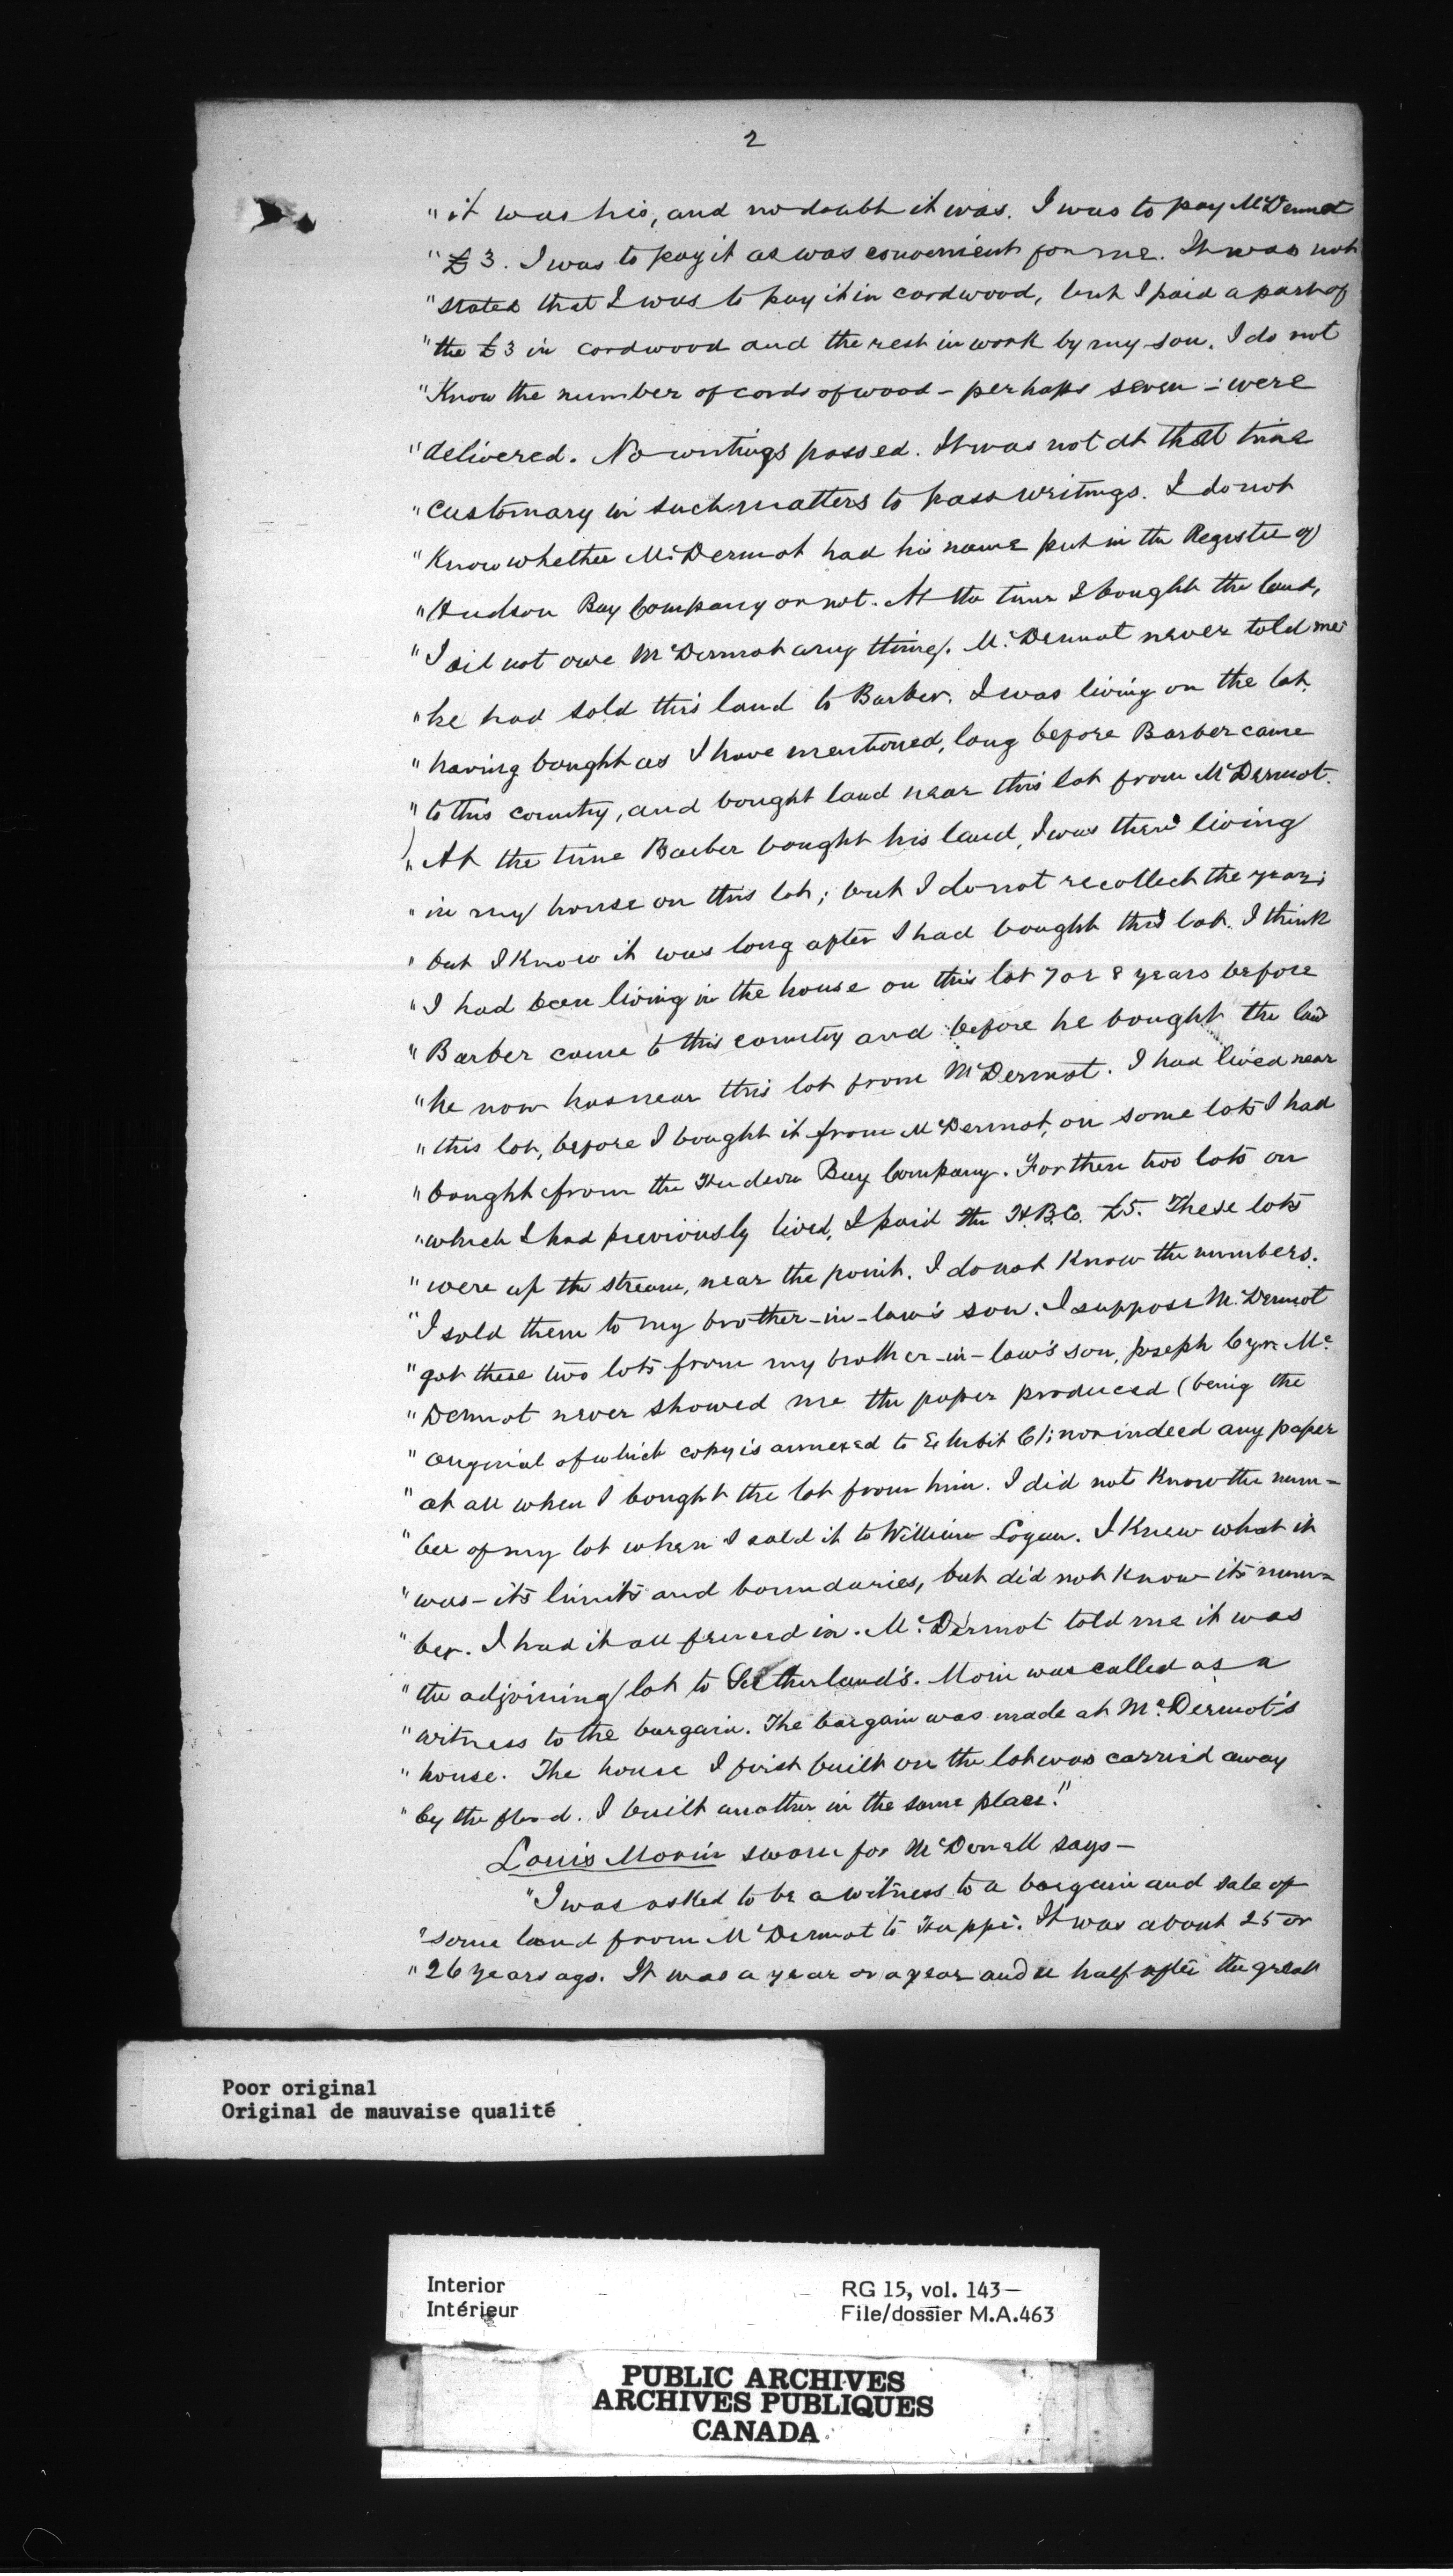 2
" it was his, and no doubt it was. I was to pay McDermot
" £3. I was to pay it as was convenient for me. It was not
" stated that I was to pay it in cordwood, but I paid a part of
" the £3 in cordwood and the rest in work by my son. I do not
" Know the number of cords of wood - perhaps seven - were
" delivered. No writings passed. It was not at that time
" customary in such matters to pass writings. I do not
" Know whether McDermot had his name put in the Register of
" Hudson Bay Company or not. At the time I bought the land,
" I did not owe McDermot any thing. McDermot never told me
" he had sold this land to Barber. I was living on the lot
" having bought as I have mentioned, long before Barber came
" to this country, and bought land near this lot from McDermot.
" At the time Barber bought his land, I was there living
" in my house on this lot; but I do not recollect the year;
" but I Know it was long after I had bought this lot. I think
" I had been living in the house on this lot 7 or 8 years before
" Barber came to this country and before he bought the land
" he now has near this lot from McDermot. I had lived near
" this lot, before I bought it from McDermot, on some lots I had
" bought from the Hudson Bay Company. For then two lots on
" which I had previously lived, I paid the H.B.Co. £5. These lots
" were up the stream, near the point. I do not Know the numbers.
" I sold them to my brother-in-law's son. I suppose McDermot
" got these two lots from my brother-in-law's son, Joseph Cyr. Mc
" Dermot never showed me the paper produced (being the
" original of which copy is annexed to Exhibit C); nor indeed any paper
" at all when I bought the lot from him. I did not Know the num-
" ber of my lot when I sold it to William Logan. I Knew what it
" was - its limits and boundaries, but did not Know its num-
" ber. I had it all fenced in. McDermot told me it was
" the adjoining lot to Sutherland's. Morin was called as a
" witness to the bargain. The bargain was made at McDermot's
" house. The house I first built on the lot was carried away
" by the flood. I built another in the same place."
Louis Morin sworn for McDonell says -
" I was asked to be a witness to a bargain and sale of
" some land from McDermot to Huppé. It was about 25 or
" 26 years ago. It was a year or a year and a half after the great
Poor original
Original de mauvaise qualité
Interior
Intérieur
RG 15, vol. 143-
File/dossier M.A.463
PUBLIC ARCHIVES
ARCHIVES PUBLIQUES
CANADA